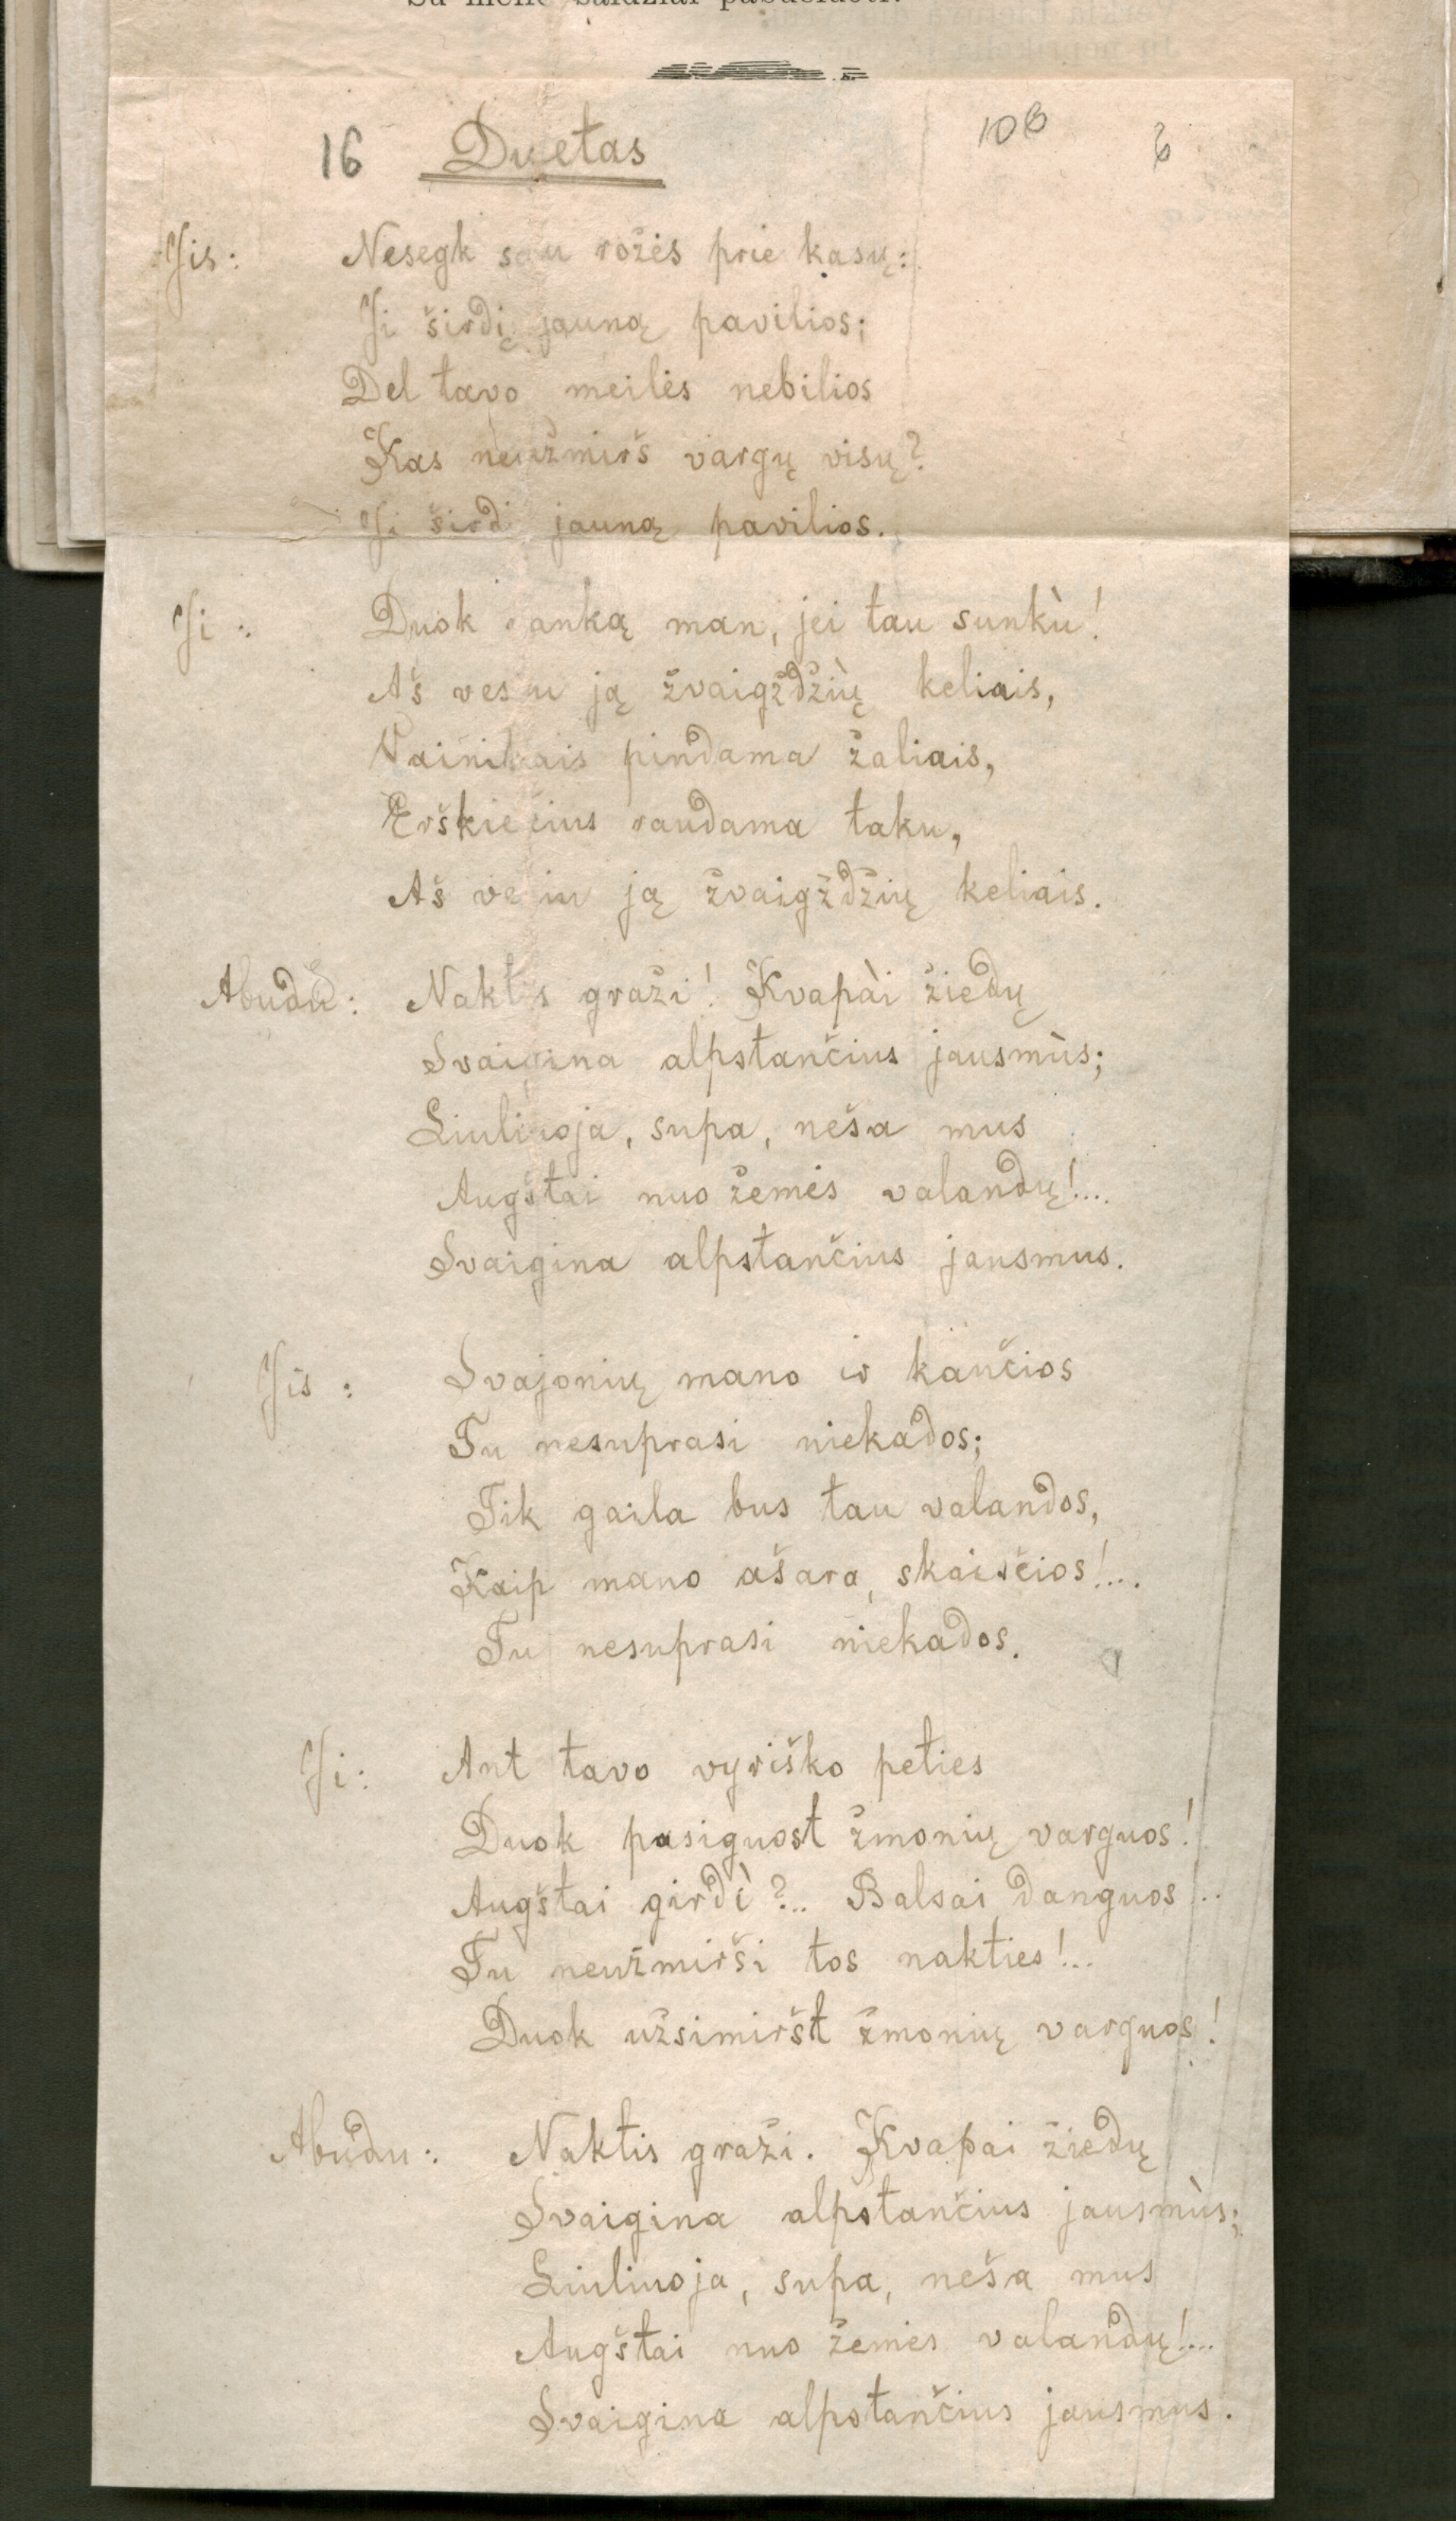 16 Duetas 106 6
Jis: Nesegk sau rožės prie kasų:
Ji širdį jauną pavilios;
Del tavo meilės nebilios
Kas neužmirš vargų visų?
Ji širdį jauną pavilios.
Ji: Duok ranką man, jei tau sunkù!
Aš vesiu ją žvaigždžių keliais,
Vainikais pindama žaliais,
Erškiečius raudama taku,
Aš vesiu ją žvaigždžių keliais.
Abudu: Naktis graži! Kvapài žiedų
Svaigina alpstančius jausmùs;
Liuliuoja, supa, neša mus
Augštai nuo žemės valandų!...
Svaigina alpstančius jausmus.
Jis: Svajonių mano ir kančios
Tu nesuprasi niekados;
Tik gaila bus tau valandos,
Kaip mano ašara, skaisčios!...
Tu nesuprasi niekados.
Ji: Ant tavo vyriško peties
Duok pasiguost žmonių varguos!
Augštai girdì?.. Balsai danguos...
Tu neužmirši tos nakties!..
Duok užsimiršt žmonių varguos!
Abudu: Naktis graži. Kvapai žiedų
Svaigina alpstančius jausmùs;
Liuliuoja, supa, neša mus
Augštai nuo žemės valandų!...
Svaigina alpstančius jausmus.